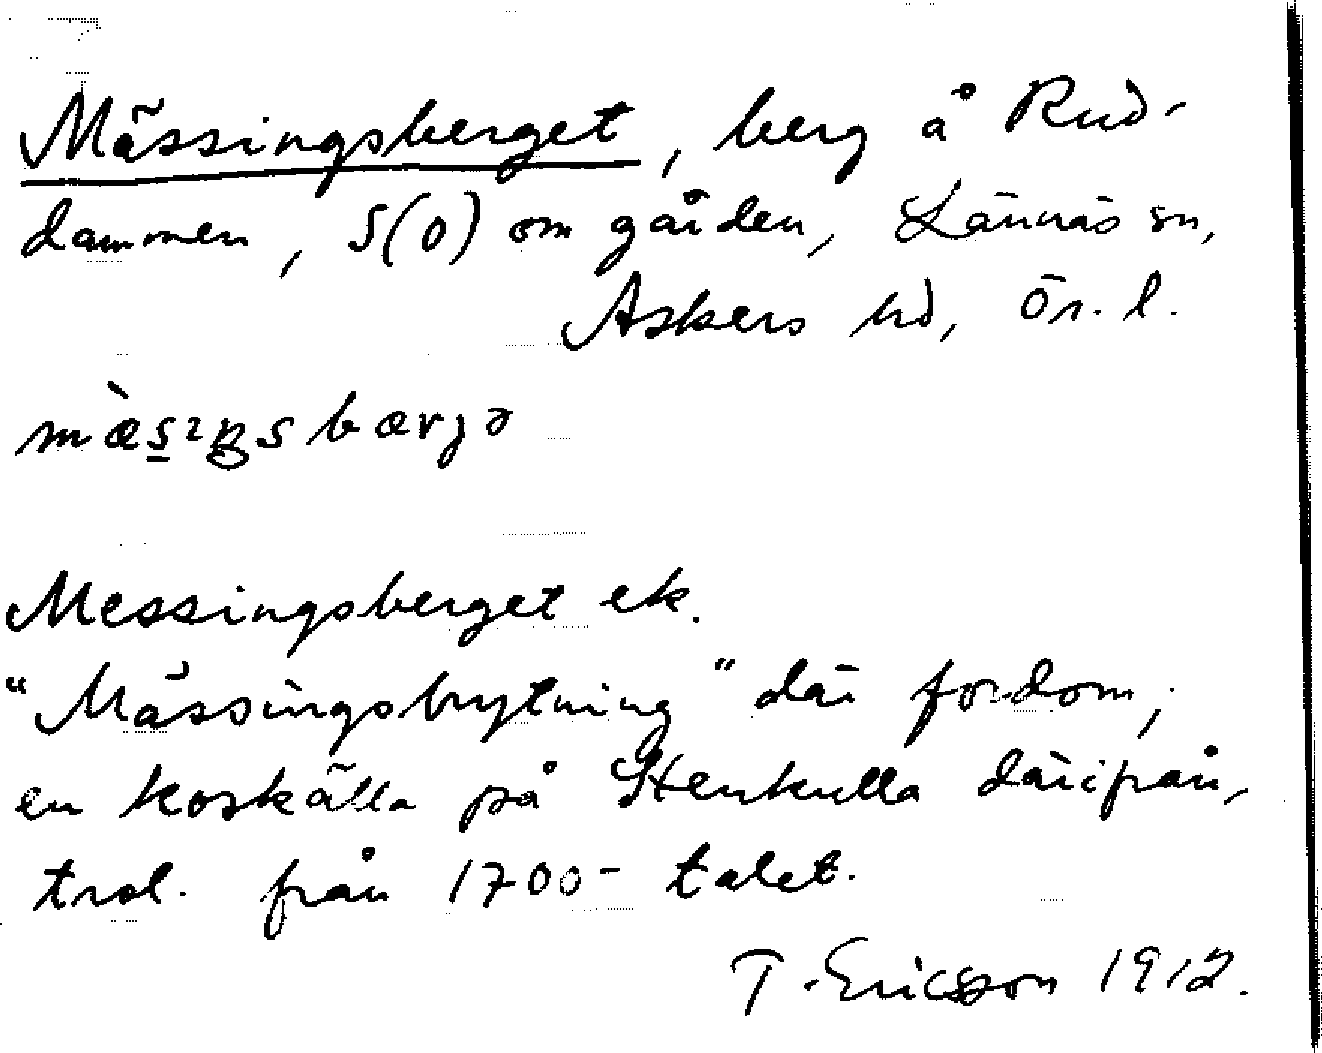 Mässingsberget, berg å Rud-
dammen, S(O) om gården, Lännäs sn,
Askers hd, Ör. l.
mæ̀sıŋsbærjə
Messingsberget ek.
"Mässingsbrytning" där fordom;
en koskälla på Stenkulla därifrån,
trol. från 1700-talet.
T. Ericsson 1912.